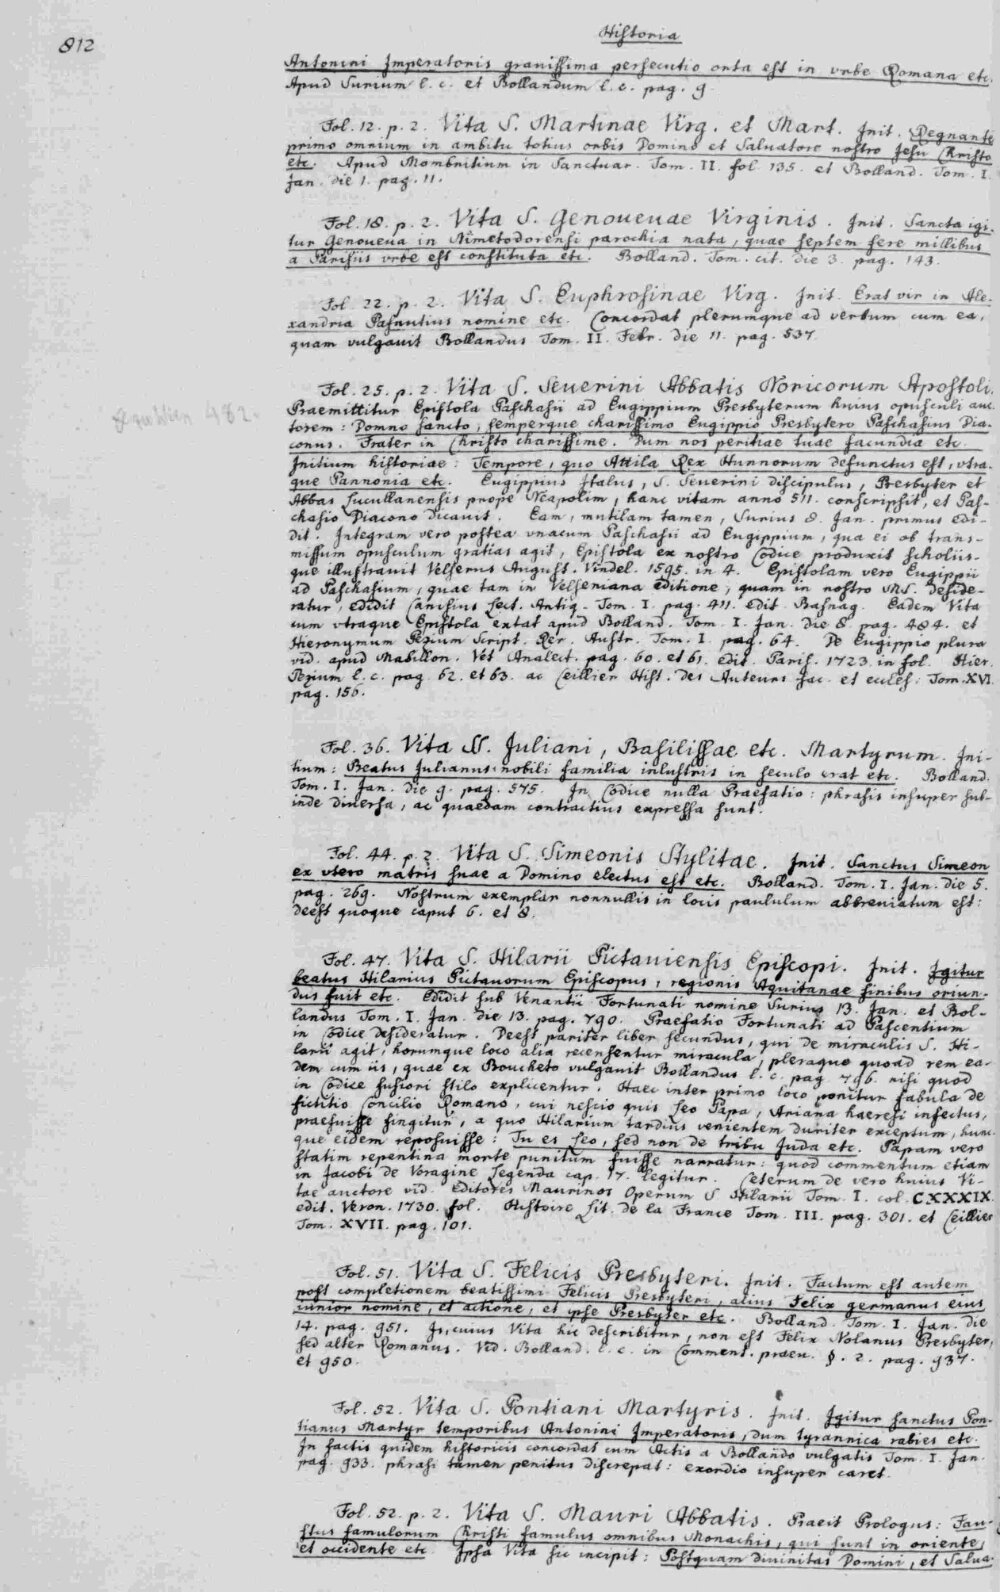 812
Historia
Antonini Imperatoris grauissima persecutio orta est in vrbe Romana etc.
Apud Surium l. c. et Bollandum l. c. pag. 9
Fol. 12. p. 2. Vita S. Martinae Virg. et Mart. Init. Regnante
primo omnium in ambitu totius orbis Domino et Saluatore nostro Jesu Christo
etc. Apud Mombritium in Sanctuar. Tom. II. fol 135. et Bolland. Tom. I.
Jan. die 1. pag. 11.
Fol. 18. p. 2. Vita S. Genoueuae Virginis. Init. Sancta igi-
tur Genoueua in Nimetodorensi parochia nata, quae septem fere millibus
a Parisiis vrbe est constituta etc. Bolland. Tom. cit. die 3. pag. 143.
Fol. 22. p. 2. Vita S. Euphrosinae Virg. Init. Erat vir in Ale-
xandria Pafnutius nomine etc. Concordat plerumque ad verbum cum ea,
quam vulgauit Bollandus Tom. II. Febr. die 11. pag. 537.
Fol. 25. p. 2. Vita S. Seuerini Abbatis Noricorum Apostoli.
Praemittitur Epistola Paschasii ad Eugippium Presbyterum huius opusculi auc-
torem: Domno sancto, semperque charissimo Eugippio Presbytero Paschasius Dia-
conus. Frater in Christo charissime. Dum nos peritiae tuae facundia etc.
482.
Initium historiae: Tempore, quo Attila Rex Hunnorum defunctus est, vtra-
que Pannonia etc. Eugippius Italus, S. Seuerini discipulus, Presbyter et
Abbas Lucullanensis prope Neapolim, hanc vitam anno 511. conscripsit, et Pas-
chasio Diacono dicauit. Eam, mutilam tamen, Surius 8. Jan. primus edi-
dit. Integram vero postea vnacum Paschasii ad Eugippium, qua ei ob trans-
missum opusculum gratias agit, Epistola ex nostro Codice produxit scholiis-
que illustrauit Velserus August. Vindel. 1595. in 4. Epistolam vero Eugippii
ad Paschasium, quae tam in Velseniana editione, quam in nostro MS. deside-
ratur, edidit Canisius Lect. Antiq. Tom. I. pag. 411. edit. Basnag. Eadem Vita
cum vtraque Epistola extat apud Bolland. Tom. I. Jan. die 8. pag. 484. et
Hieronymum Pezium Script. Rer. Austr. Tom. I. pag. 64. De Eugippio plura
vid. apud Mabillon. Vet. Analect. pag. 60. et 61. edit. Paris. 1723. in fol. Hier.
Pezium l. c. pag. 62. et 63. ac Ceillier Hist. des Auteurs sac. et eccles: Tom. XVI.
pag. 156.
Fol. 36. Vita SS. Juliani, Basilissae etc. Martyrum. Ini-
tium: Beatus Julianus nobili familia inlustris in seculo erat etc. Bolland.
Tom. I. Jan. die 9. pag. 575. In Codice nulla Praefatio: phrasis insuper sub-
inde diuersa, ac quaedam contractius expressa sunt.
Fol. 44. p. 2. Vita S. Simeonis Stylitae. Init. Sanctus Simeon
ex vtero matris suae a Domino electus est etc. Bolland. Tom. I. Jan. die 5.
pag. 269. Nostrum exemplar nonnullis in locis paululum abbreuiatum est:
deest quoque caput 6. et 8.
Fol. 47. Vita S. Hilarii Pictauiensis Episcopi. Init. Igitur
beatus Hilarius Pictauorum Episcopus, regionis Aquitanae finibus oriun-
dus fuit etc. Edidit sub Venantii Fortunati nomine Surius 13. Jan. et Bol-
landus Tom. I. Jan. die 13. pag. 790. Praefatio Fortunati ad Pascentium
in Codice desideratur. Deest pariter liber secundus, qui de miraculis S. Hi-
larii agit, horumque loco alia recensentur miracula, pleraque quoad rem ea-
dem cum iis, quae ex Boucheto vulgauit Bollandus l. c. pag. 796. nisi quod
in Codice fusiori stilo explicentur. Haec inter primo loco ponitur fabula de
fictitio Concilio Romano, cui nescio quis Leo Papa, Ariana haeresi infectus,
praefuisse fingitur, a quo Hilarium tardius venientem duriter exceptum, hunc-
que eidem reposuisse: Tu es Leo, sed non de tribu Juda etc. Papam vero
statim repentina morte punitum fuisse narratur: quod commentum etiam
in Jacobi de Voragine Legenda cap. 17. legitur. Ceterum de vero huius Vi-
tae auctore vid. Editores Maurinos Operum S Hilarii Tom. I. col. CXXXIX.
edit. Veron. 1730. fol. Histoire Lit. de la France Tom. III. pag. 301. et Ceillier
Tom. XVII. pag. 101.
Fol. 51. Vita S. Felicis Presbyteri. Init. Factum est autem
post completionem beatissimi Felicis Presbyteri, alius Felix germanus eius
iunior nomine, et actione, et ipse Presbyter etc. Bolland. Tom. I. Jan. die
14. pag. 951. Is, cuius Vita hic describitur, non est Felix Nolanus Presbyter,
sed alter Romanus. Vid. Bolland. l. c. in Comment. praeu. §. 2. pag. 937.
et 950.
Fol. 52. Vita S. Pontiani Martyris. Init. Igitur sanctus Pon-
tianus Martyr temporibus Antonini Imperatoris, dum tyrannica rabies etc.
In factis quidem historicis concordat cum Actis a Bollando vulgatis Tom. I. Jan.
pag. 933. phrasi tamen penitus discrepat: exordio insuper caret.
Fol. 52. p. 2. Vita S. Mauri Abbatis. Praeit Prologus: Fau-
stus famulorum Christi famulus omnibus Monachis, qui sunt in oriente,
et occidente etc. Ipsa Vita sic incipit: Postquam diuinitas Domini, et Salua-